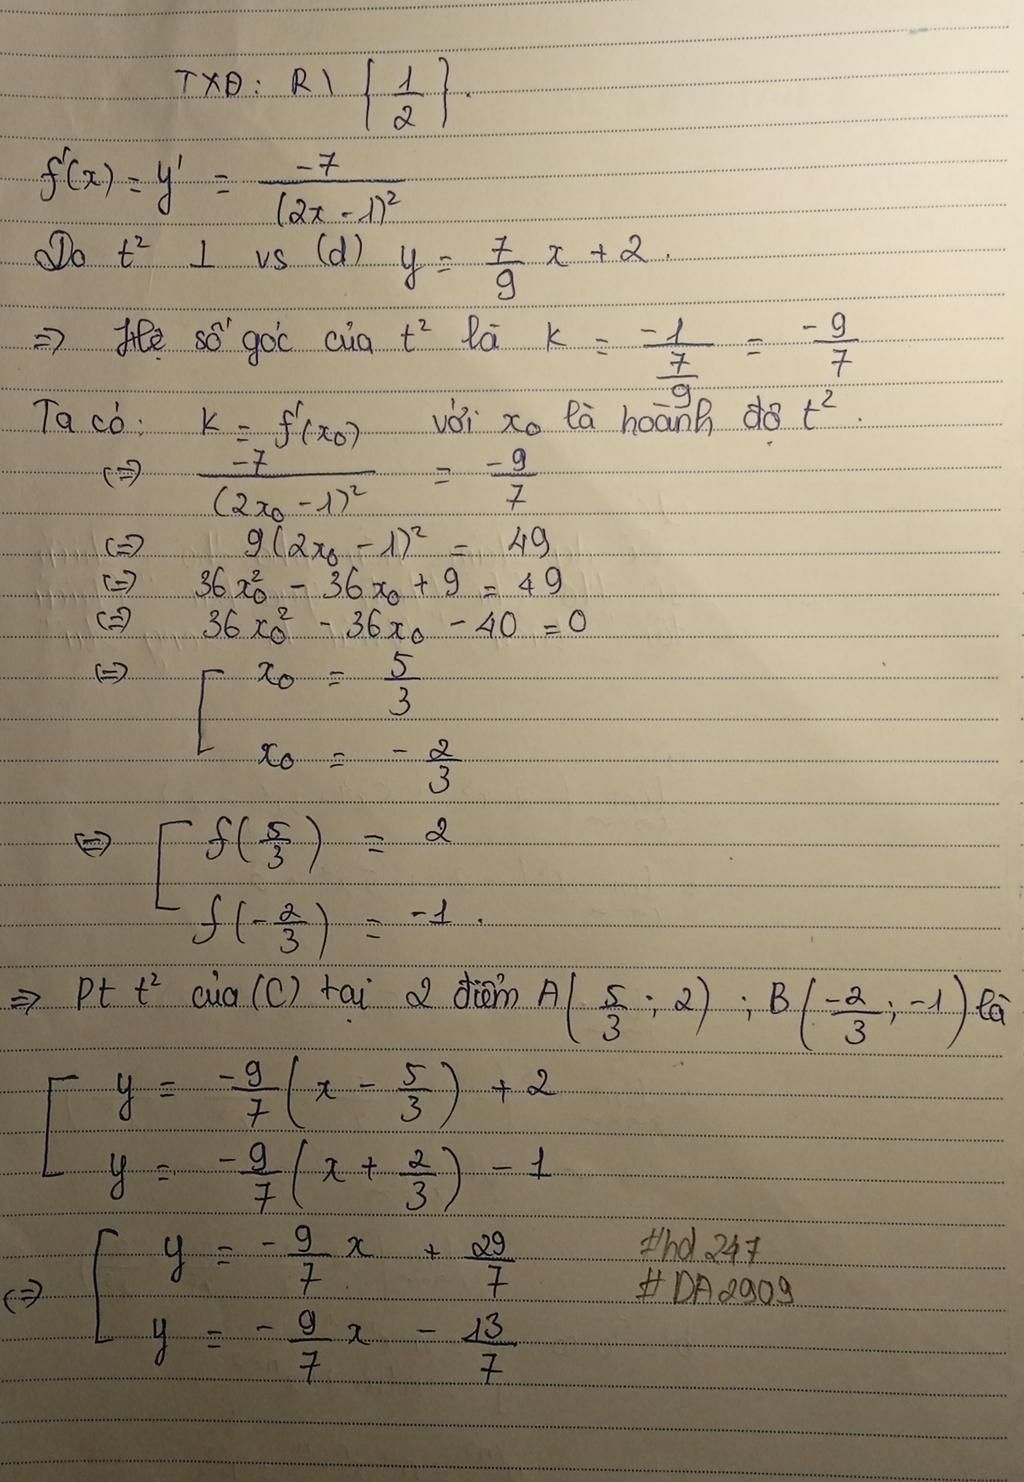 TXĐ: R \ { 1/2 }.
f'(x) = y' = -7/(2x - 1)²
Do t² ⊥ vs (d) y = 7/9 x + 2.
=> Hệ số góc của t² là k = -1/(7/9) = -9/7
Ta có: k = f'(x₀) với x₀ là hoành độ t².
<=> -7/(2x₀ - 1)² = -9/7
<=> 9(2x₀ - 1)² = 49
<=> 36x₀² - 36x₀ + 9 = 49
<=> 36x₀² - 36x₀ - 40 = 0
<=> [ x₀ = 5/3
x₀ = -2/3
<=> [ f(5/3) = 2
f(-2/3) = -1.
=> Pt t² của (C) tại 2 điểm A(5/3; 2); B(-2/3; -1) là
[ y = -9/7 (x - 5/3) + 2
y = -9/7 (x + 2/3) - 1
<=> [ y = -9/7 x + 29/7
y = -9/7 x - 13/7
#hd247
#DA2909